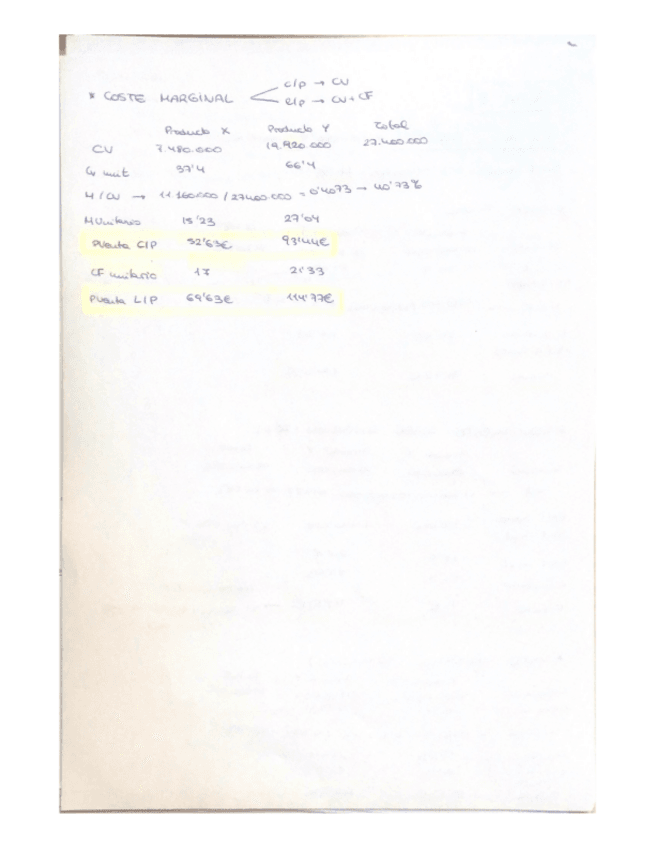 * COSTE MARGINAL
C/P → CV
L/P → CV + CF
Producto X Producto Y Total
CV 7.480.000 19.920.000 27.400.000
Cv unit 37'4 66'4
M/CV → 11.160.000 / 27.400.000 = 0'4073 → 40'73%
M Unitario 15'23 27'04
PVenta C/P 52'63€ 93'44€
CF unitario 17 21'33
PVenta L/P 69'63€ 114'77€